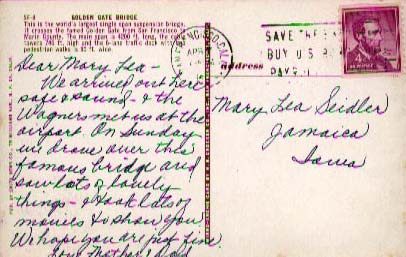 SF-8 GOLDEN GATE BRIDGE
This is the world's largest single span suspension bridge.
It crosses the famed Golden Gate from San Francisco to
Marin County. The main span is 4200 ft. long, the
towers 746 ft. high and the 6-lane traffic deck with
pedestrian walks is 90 ft. wide.
Dear Mary Lea-
We arrived out here
safe & sound - & the
Wagners met us at the
airport. On Sunday
we drove over this
famous bridge and
saw lots of lovely
things - & took lots of
movies to show you
We hope you are just fine.
Love Mother & Dad
SAN FRANCISCO, CALIF.
APR
SAVE
BUY U.S.
address
4¢
Mary Lea Seidler
Jamaica
Iowa